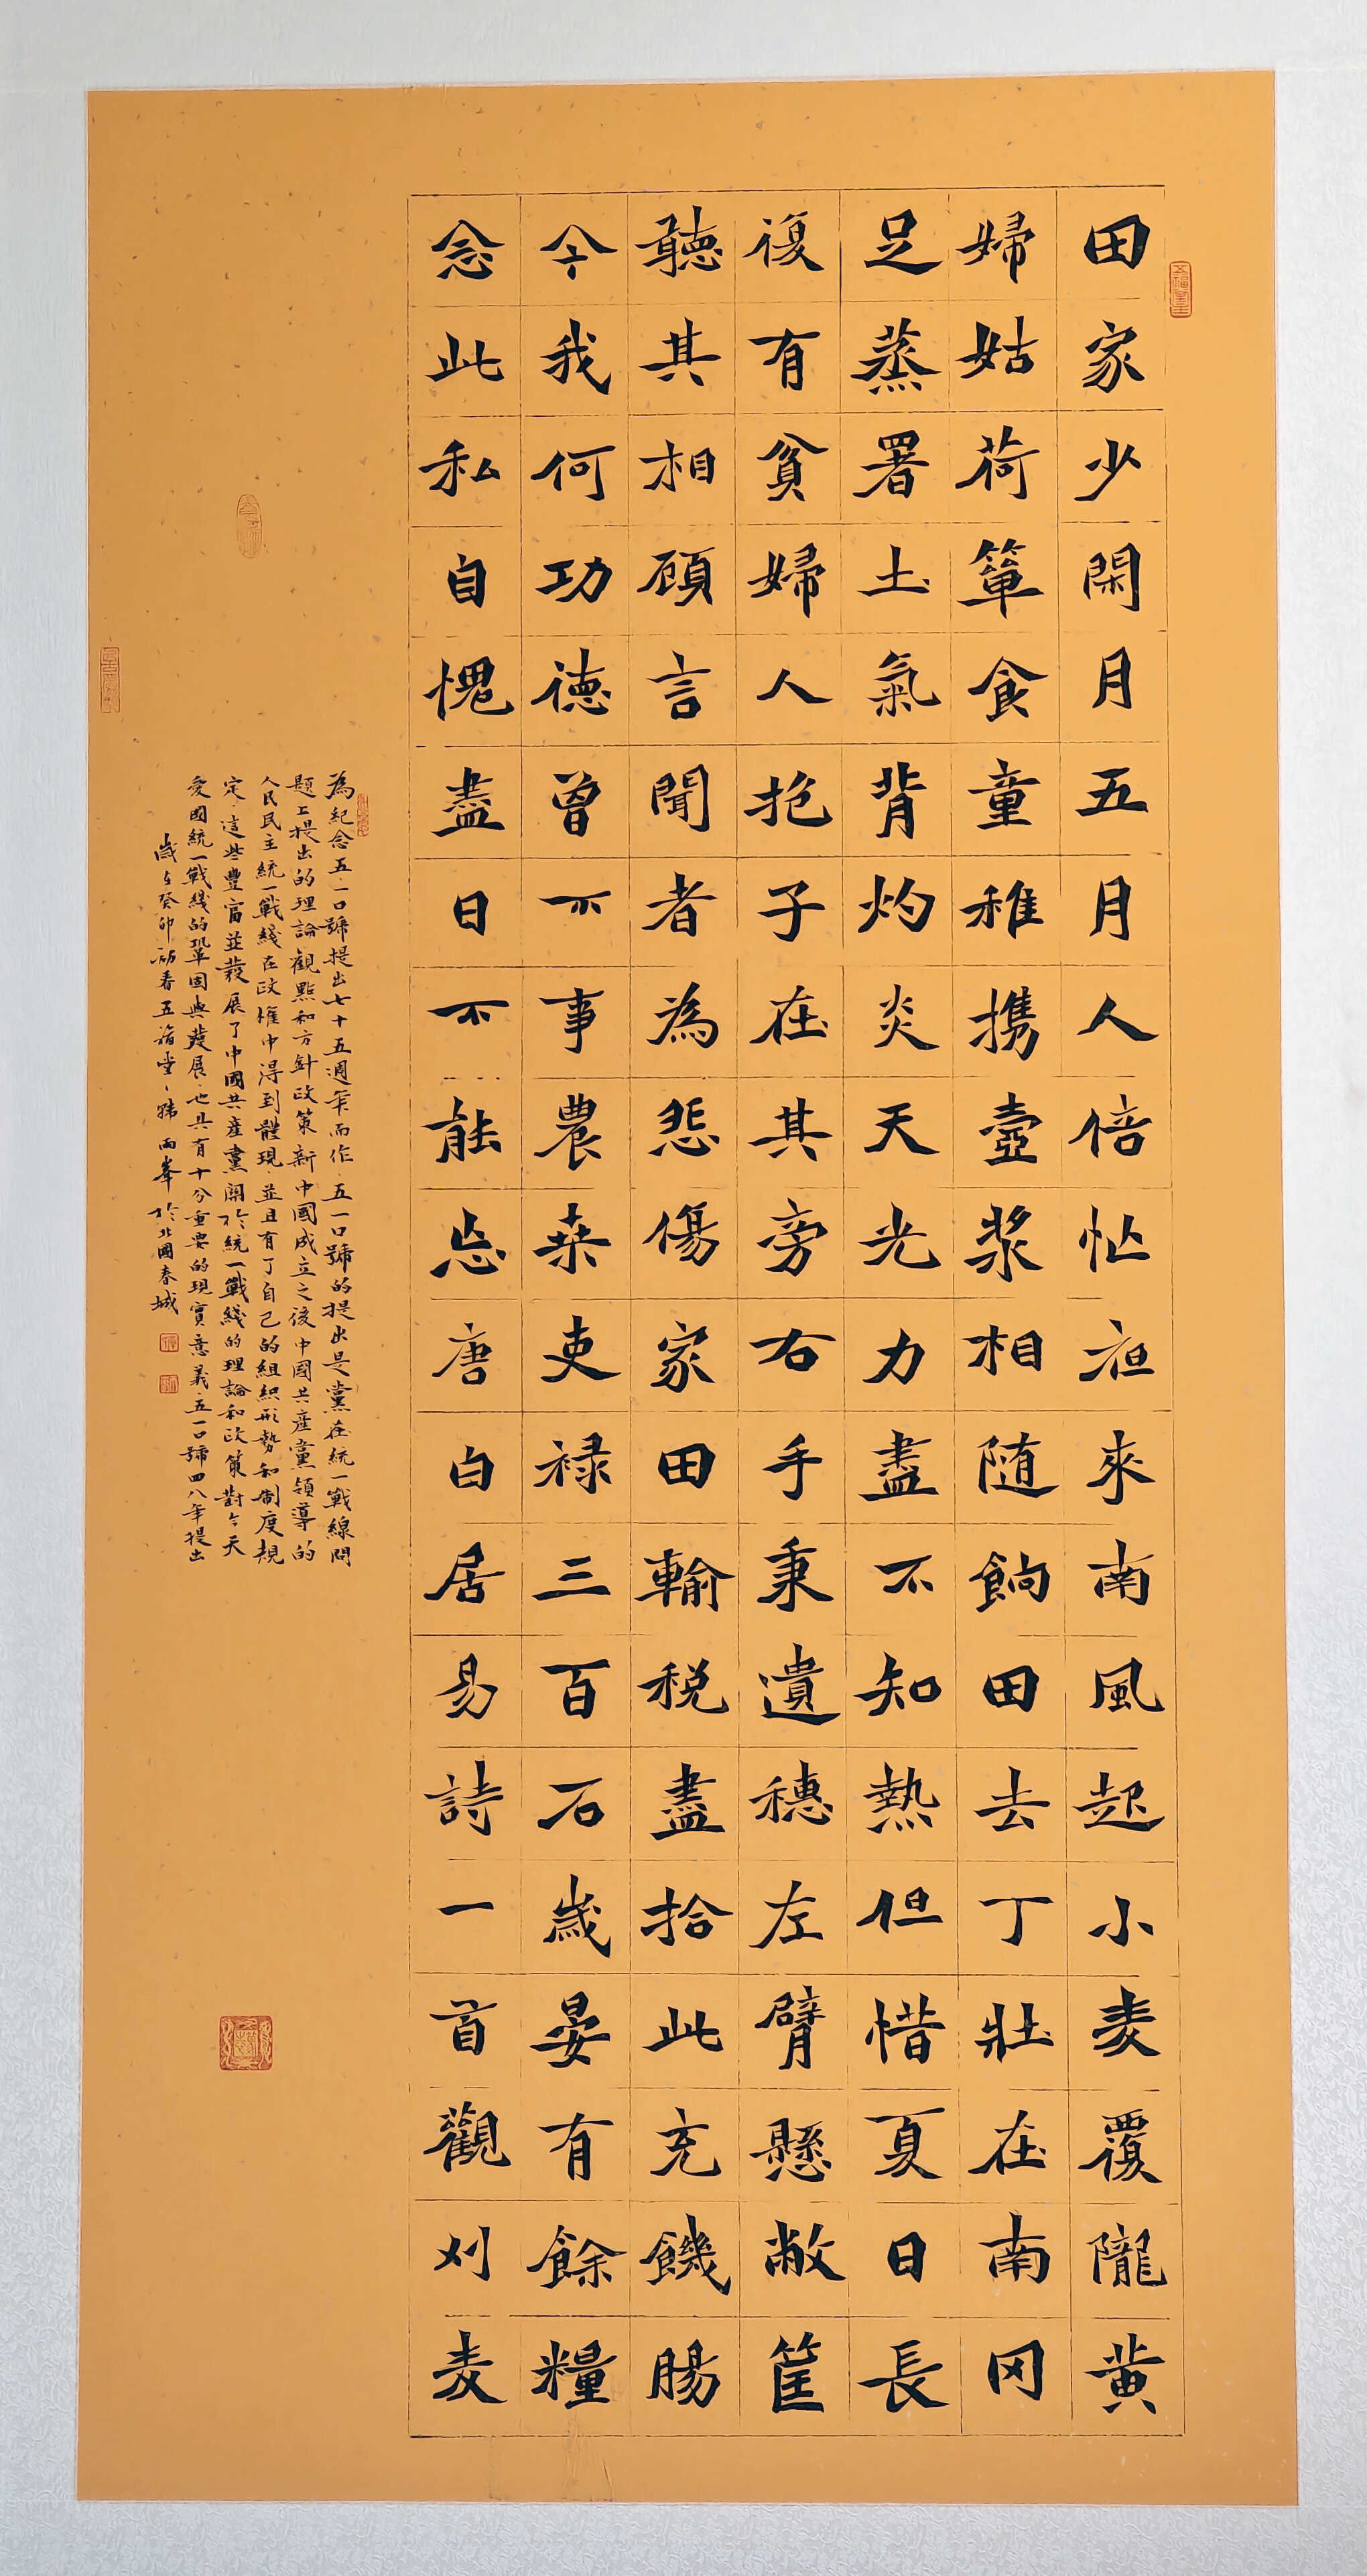 田家少閑月五月人倍忙夜來南風起小麦覆隴黃
婦姑荷簞食童稚携壺漿相随餉田去丁壯在南冈
足蒸署土氣背灼炎天光力盡不知熱但惜夏日長
復有貧婦人抱子在其旁右手秉遺穗左臂懸敝筐
聽其相顧言聞者為悲傷家田輸税盡拾此充饑腸
今我何功德曾不事農桒吏禄三百石歲晏有餘糧
念此私自愧盡日不能忘唐白居易詩一首觀刈麦
為紀念五一口號提出七十五週年而作五一口號的提出是黨在統一戰線問
題上提出的理論觀點和方針政策新中國成立之後中國共產黨領導的
人民民主統一戰綫在政權中得到體現並且有了自己的組織形勢和制度規
定這些豐富並發展了中國共產黨關於統一戰綫的理論和政策對今天
愛國統一戰綫的鞏固與發展也具有十分重要的現實意義五一口號四八年提出
歲在癸卯初春五福堂主韓雨峯於北國春城